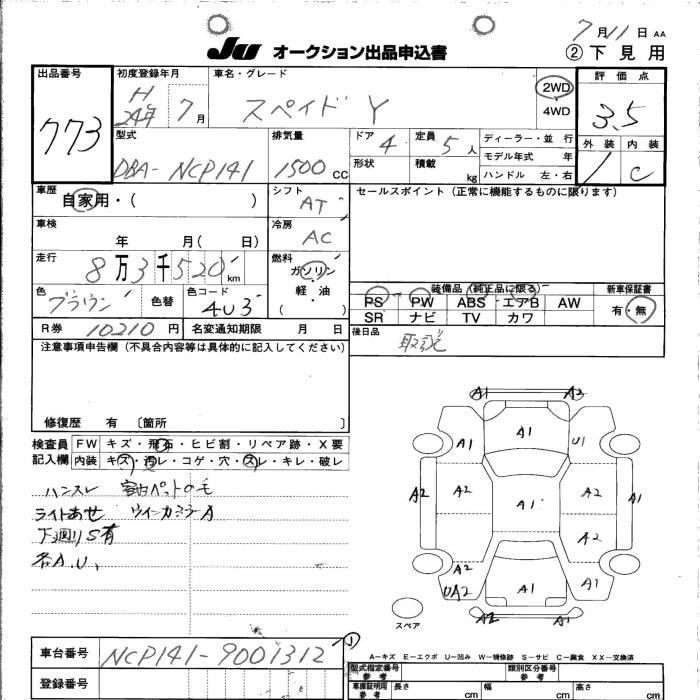 7月11日 AA
JU オークション出品申込書
② 下見用
出品番号
773
初度登録年月
H
24年 7月
車名・グレード
スペイド Y
2WD
4WD
評価点
3.5
型式
DBA-NCP141
排気量
1500 CC
ドア
4
定員
5人
形状
積載
kg
ディーラー・並行
モデル年式 年
ハンドル 左・右
外装
1
内装
C
車歴
自家用・( )
シフト
AT
セールスポイント(正常に機能するものに限ります)
車検
年 月( 日)
冷房
AC
走行
8万3千520km
燃料
ガソリン
・
軽・油
( )
色
ブラウン
色替
色コード
4U3
装備品(純正品に限る)
PS PW ABS エアB AW
SR ナビ TV カワ
新車保証書
有・無
R券 10210円
名変通知期限 月 日
後日品
取説
注意事項申告欄(不具合内容等は具体的に記入してください)
修復歴 有 〔箇所 〕
検査員
記入欄
FW キズ・飛石・ヒビ割・リペア跡・X要
内装 キズ・汚レ・コゲ・穴・スレ・キレ・破レ
ハンスレ 室内ペットの毛
ライトあせ ウインカミラーA
下廻りS有
各A.U.
A1 A2
A1 A1 U1
A2 A2 A1 A2 A1
A2
A2 A1 A1
UA2
A2 A1
スペア
①
A-キズ E-エクボ U-凹み W-補修跡 S-サビ C-腐食 XX-交換済
車台番号
NCP141-9001312
登録番号
型式指定番号
参考
類別区分番号
参考
車庫証明用
参考
長さ cm
幅 cm
高さ cm